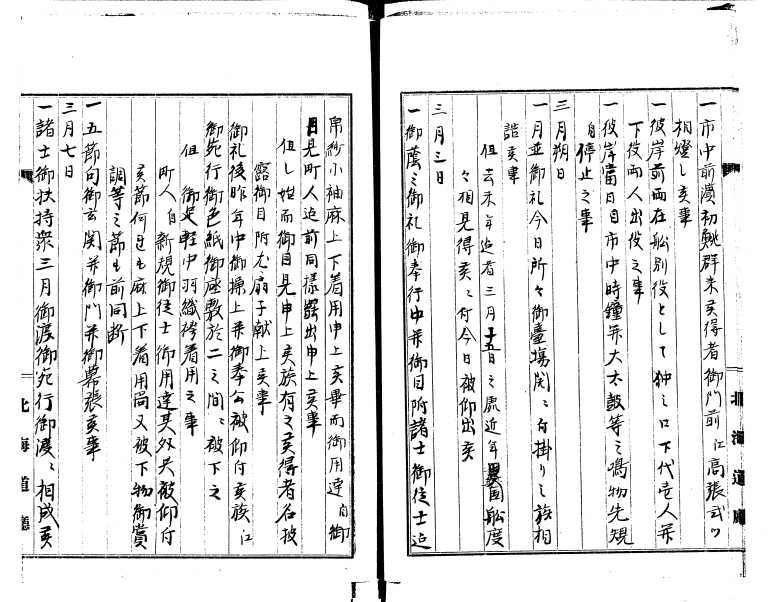 一市中前濱初鯡群来候得者御門前江高張弐ツ
相燈し候事
一彼岸前両在船別役として沖之口下代壱人并
下役両人出役之事
一彼岸當日目市中時鐘并大太鼓等之鳴物先規
自停止之事
三月朔日
一月並御礼今日所々御臺場関々相掛り之族相
詰候事
但去未年迄者三月十五日之處近年異国船度
々相見得候ニ付今日被仰出候
三月三日
一御蔦之御礼御奉行中并御目附諸士御徒士迄
帛紗小袖麻上下着用申上候畢而御用達自御
目見町人迄前同様罷出申上候事
但し姓而御目見申上候族有之候得者名披
露御目附江扇子献上候事
御礼後昨年中御操上并御奉公被仰付候族江
御宛行御色紙御座敷於二之間被下之
但御足軽中羽織袴着用之事
町人自新規御徒士御用達其外夫々被仰付
候節何連も麻上下着用尚又被下物御賞
調等之節も前同断
一五節句御玄関并御門并御幕張候事
三月七日
一諸士御扶持衆三月御渡御宛行御渡ニ相成候
北海道廳
北海道廳